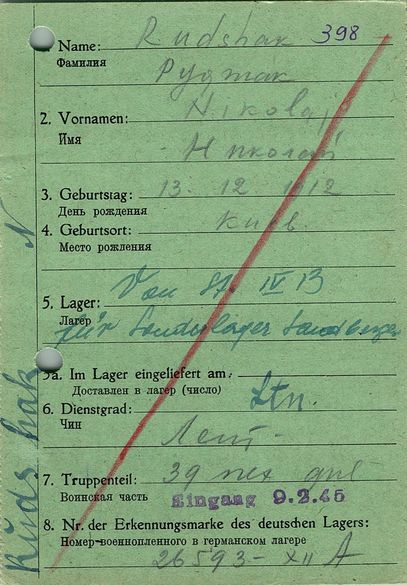 398
Name: Rudshak
Фамилия Руджак
2. Vornamen: Nikolaj
Имя Николай
3. Geburtstag: 13. 12. 1912
День рождения
4. Geburtsort: Киев.
Место рождения
Von St. IV B
5. Lager:
Лагерь für Sonderlager
5a. Im Lager eingeliefert am:
Доставлен в лагерь (число)
6. Dienstgrad: Ltn.
Чин Лейт-
7. Truppenteil: 39
Воинская часть Eingang 9.2.45
8. Nr. der Erkennungsmarke des deutschen Lagers:
Номер-военнопленного в германском лагере
26593- XII A
Rudshak N